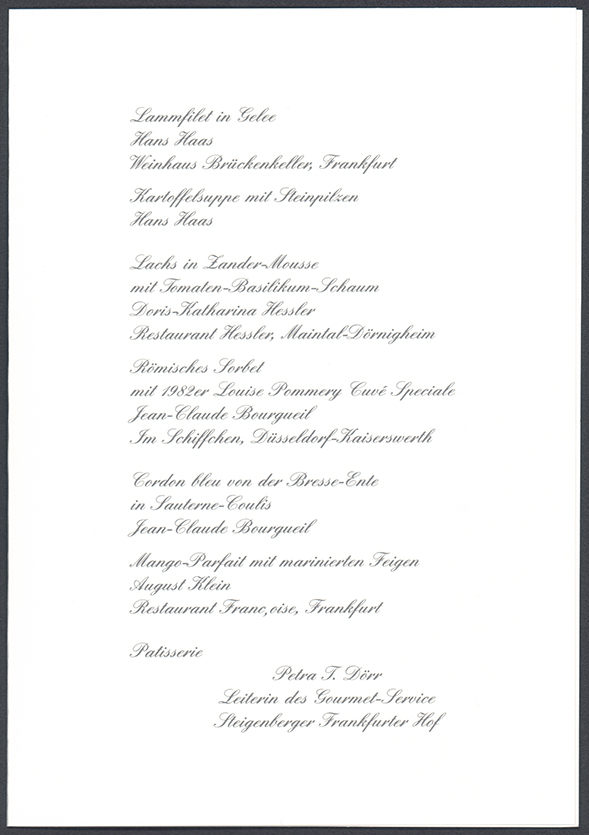 Lammfilet in Gelee
Hans Haas
Weinhaus Brückenkeller, Frankfurt
Kartoffelsuppe mit Steinpilzen
Hans Haas
Lachs in Zander-Mousse
mit Tomaten-Basilikum-Schaum
Doris-Katharina Hessler
Restaurant Hessler, Maintal-Dörnigheim
Römisches Sorbet
mit 1982er Louise Pommery Cuvé Speciale
Jean-Claude Bourgueil
Im Schiffchen, Düsseldorf-Kaiserswerth
Cordon bleu von der Bresse-Ente
in Sauterne-Coulis
Jean-Claude Bourgueil
Mango-Parfait mit marinierten Feigen
August Klein
Restaurant Franc,oise, Frankfurt
Patisserie
Petra T. Dörr
Leiterin des Gourmet-Service
Steigenberger Frankfurter Hof